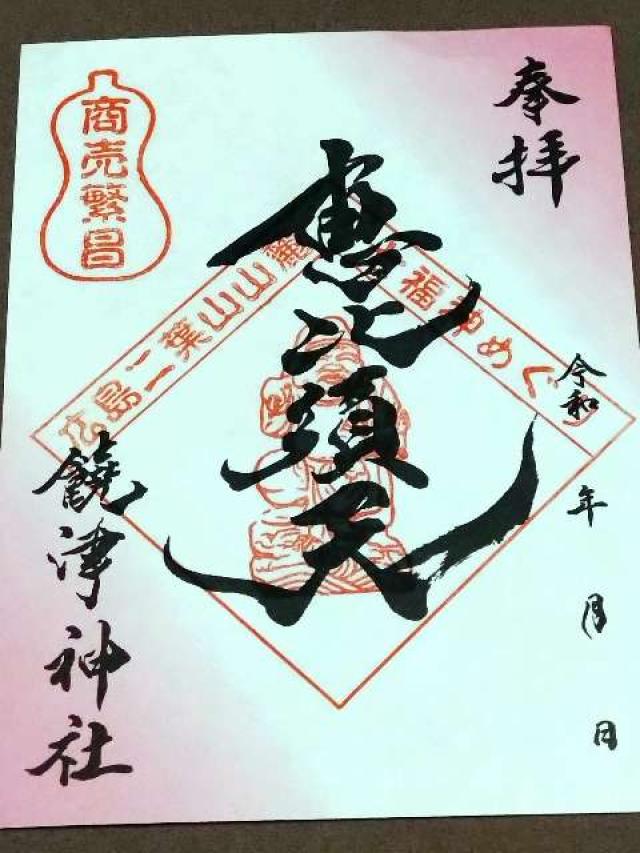 奉拝
令和　年　月　日
恵比須天
福神めぐ
広島二葉山山麓
商売繁昌
饒津神社